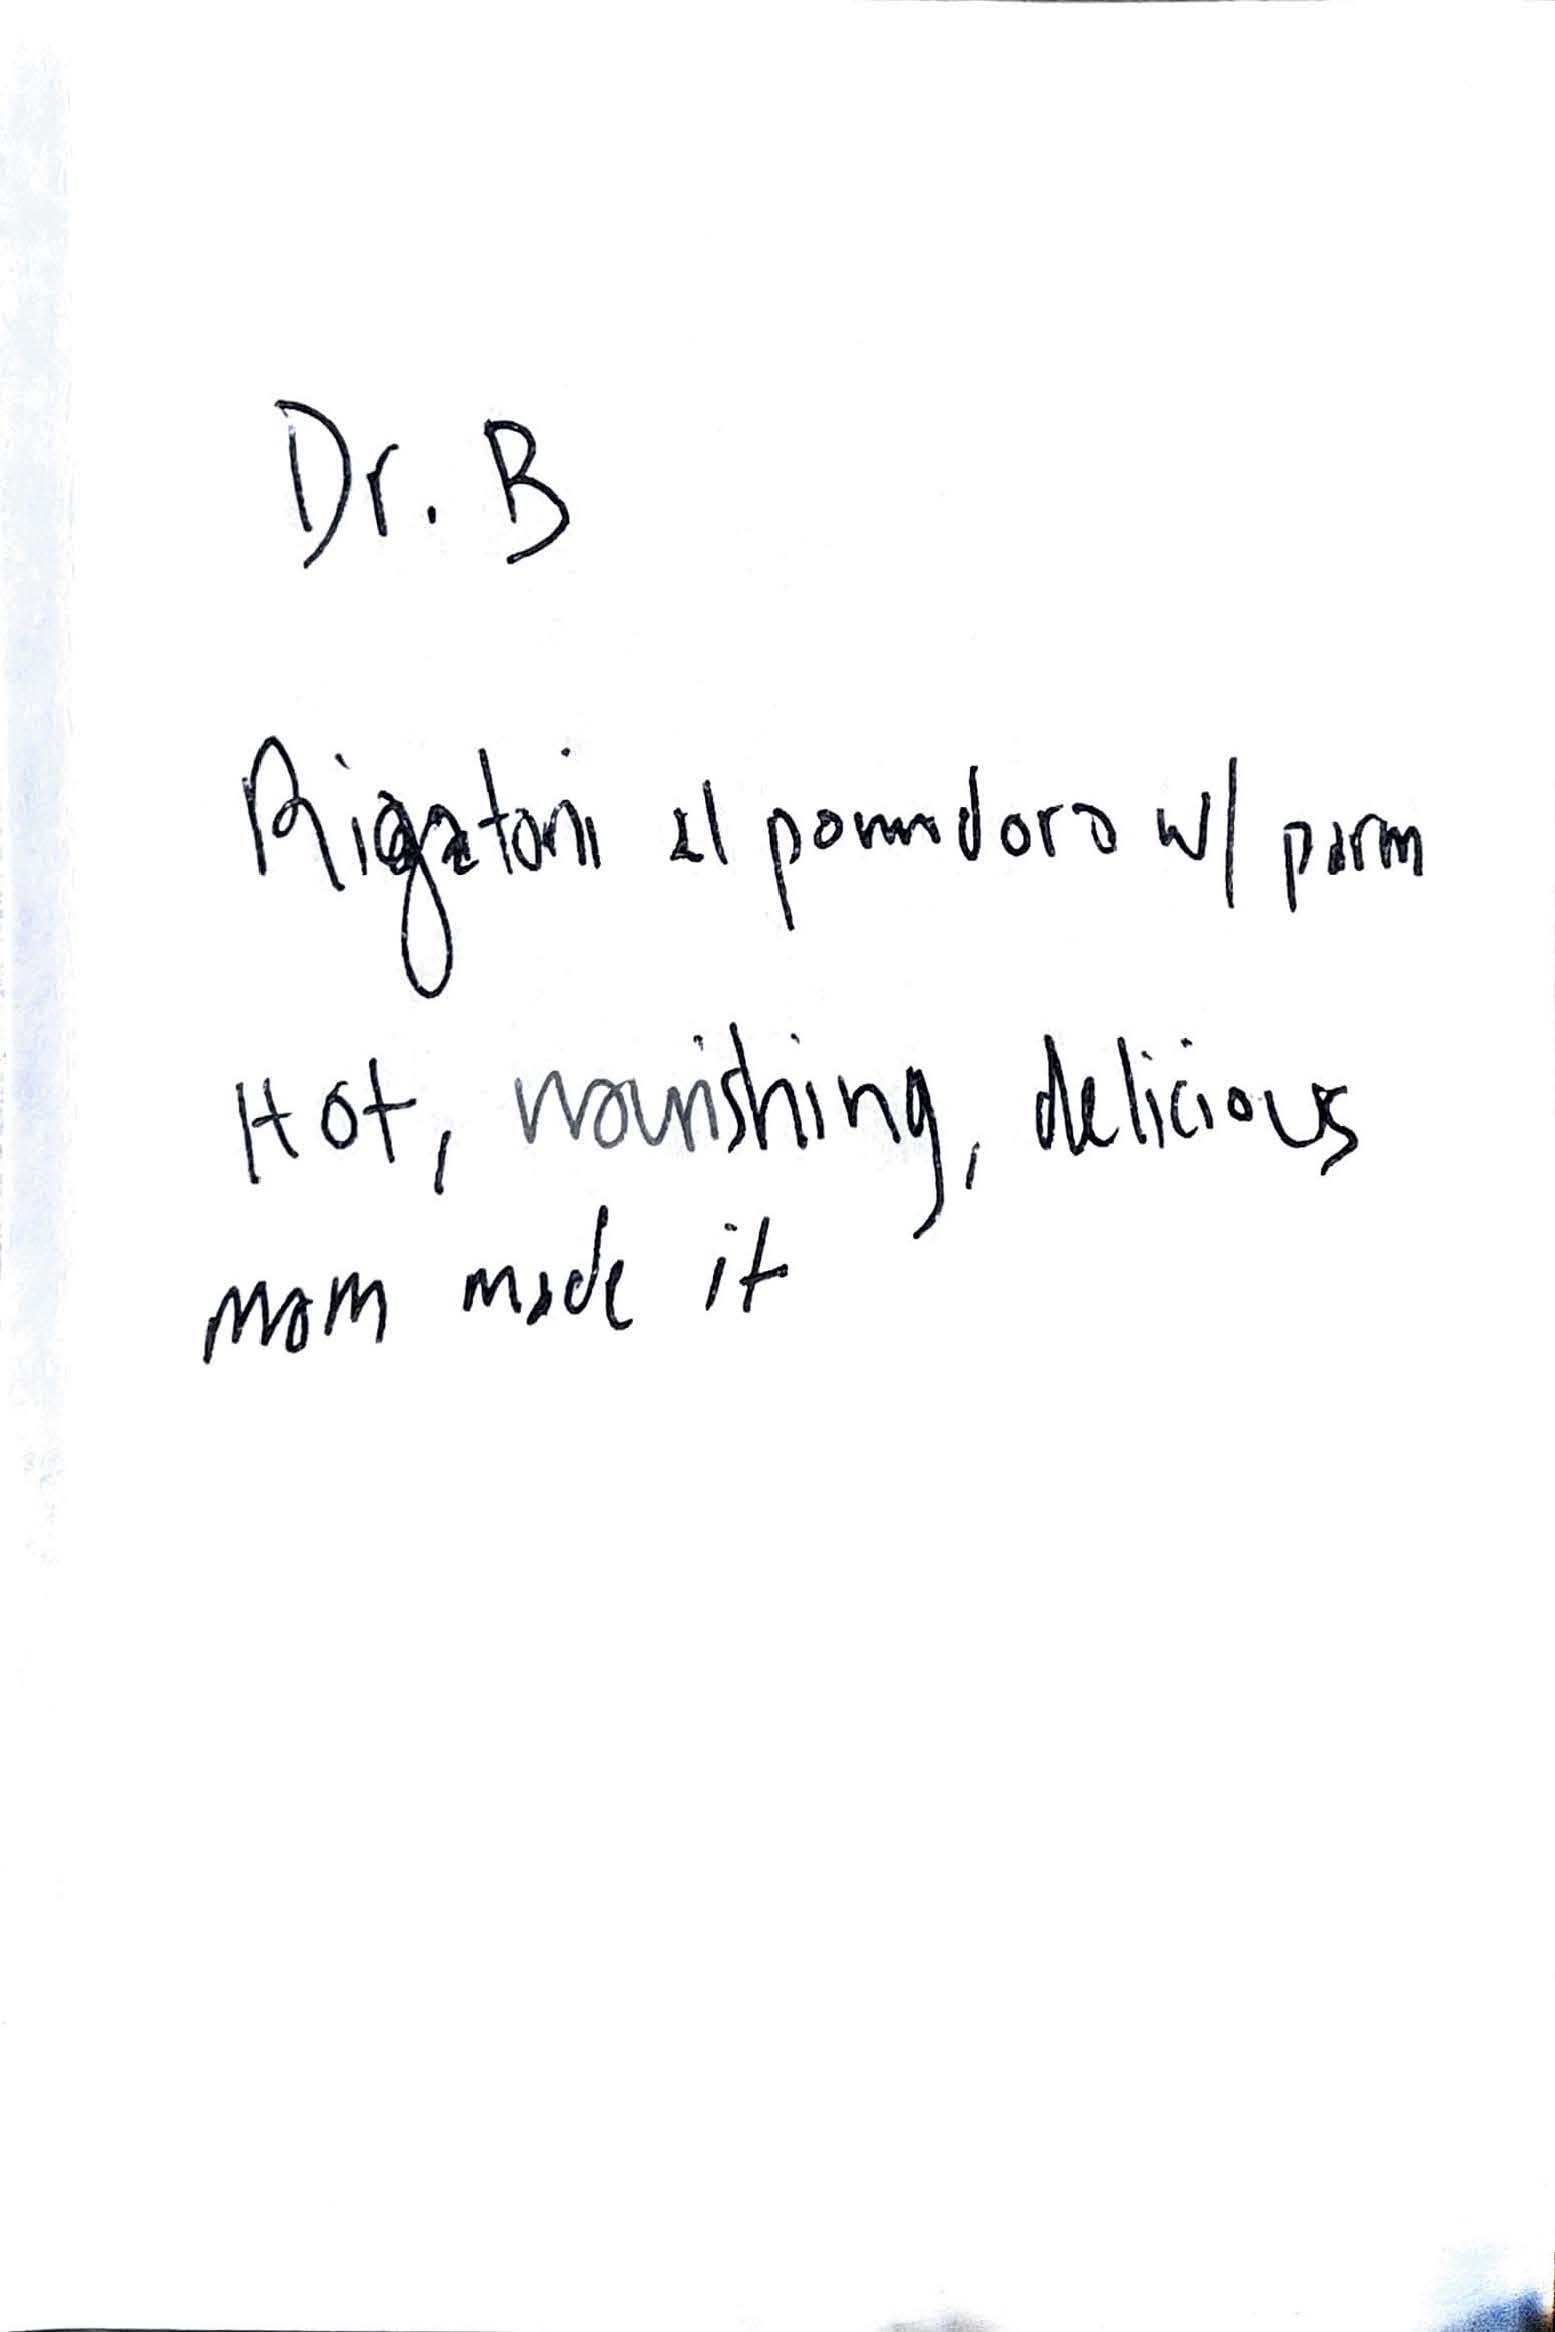 Dr. B
Rigatoni al pomodoro w/ parm
Hot, nourishing, delicious
mom made it